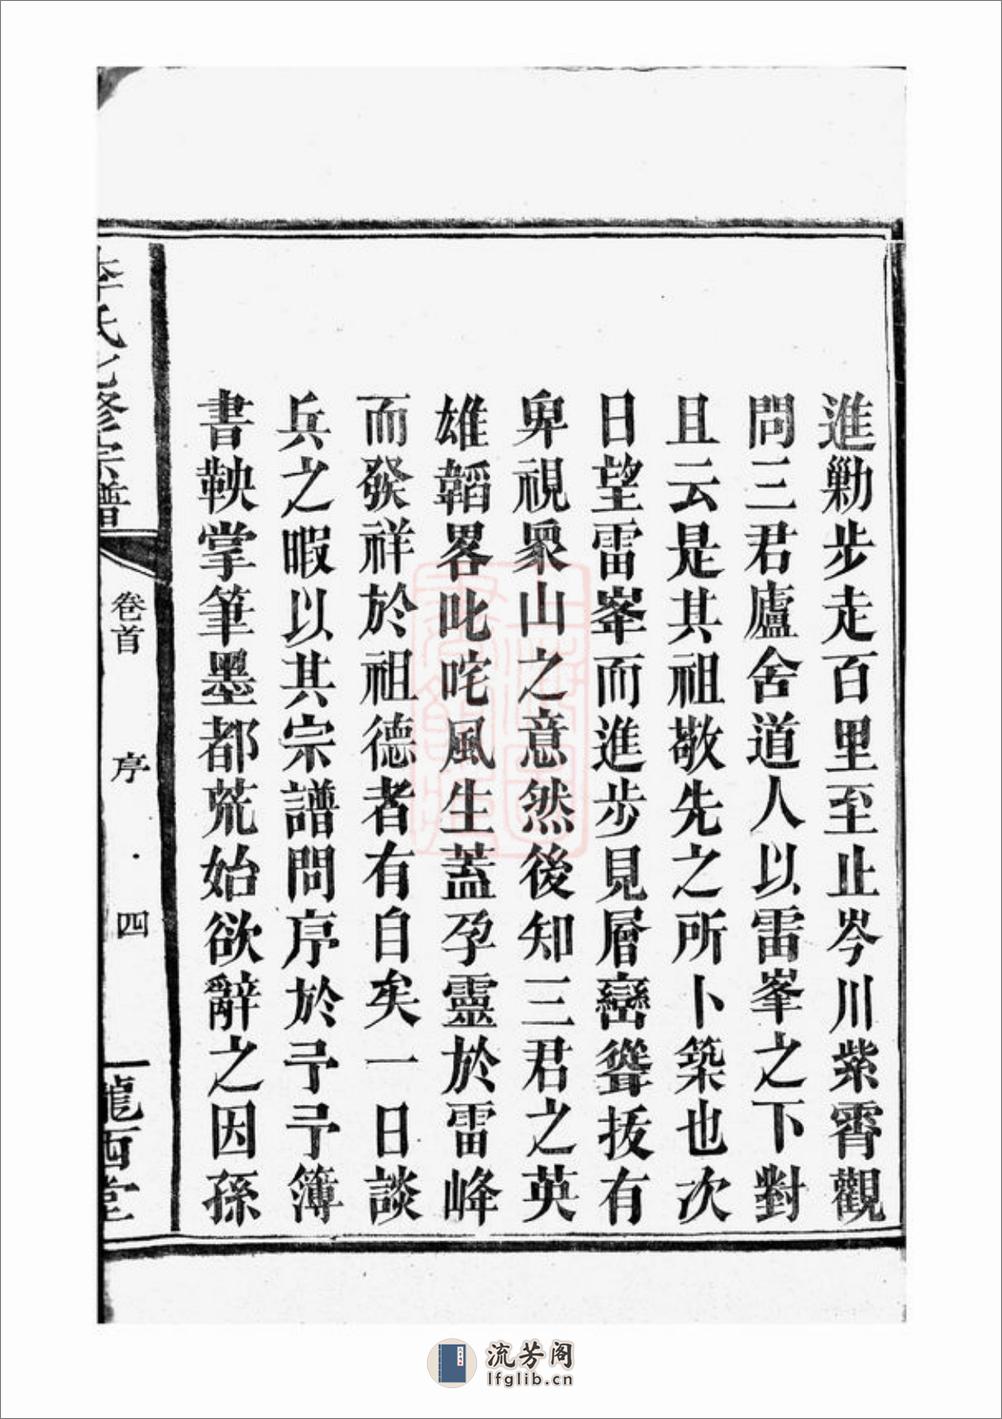 進勦步走百里至止岑川紫霄觀
問三君廬舍道人以雷峯之下對
且云是其祖敬先之所卜築也次
日望雷峯而進步見層巒聳拔有
卑視衆山之意然後知三君之英
雄韜畧叱咤風生蓋孕靈於雷峰
而發祥於祖德者有自矣一日談
兵之暇以其宗譜問序於予予簿
書鞅掌筆墨都荒始欲辭之因孫
李氏七修宗譜
卷首
序
四
隴西堂
流芳阁
lfglib.cn